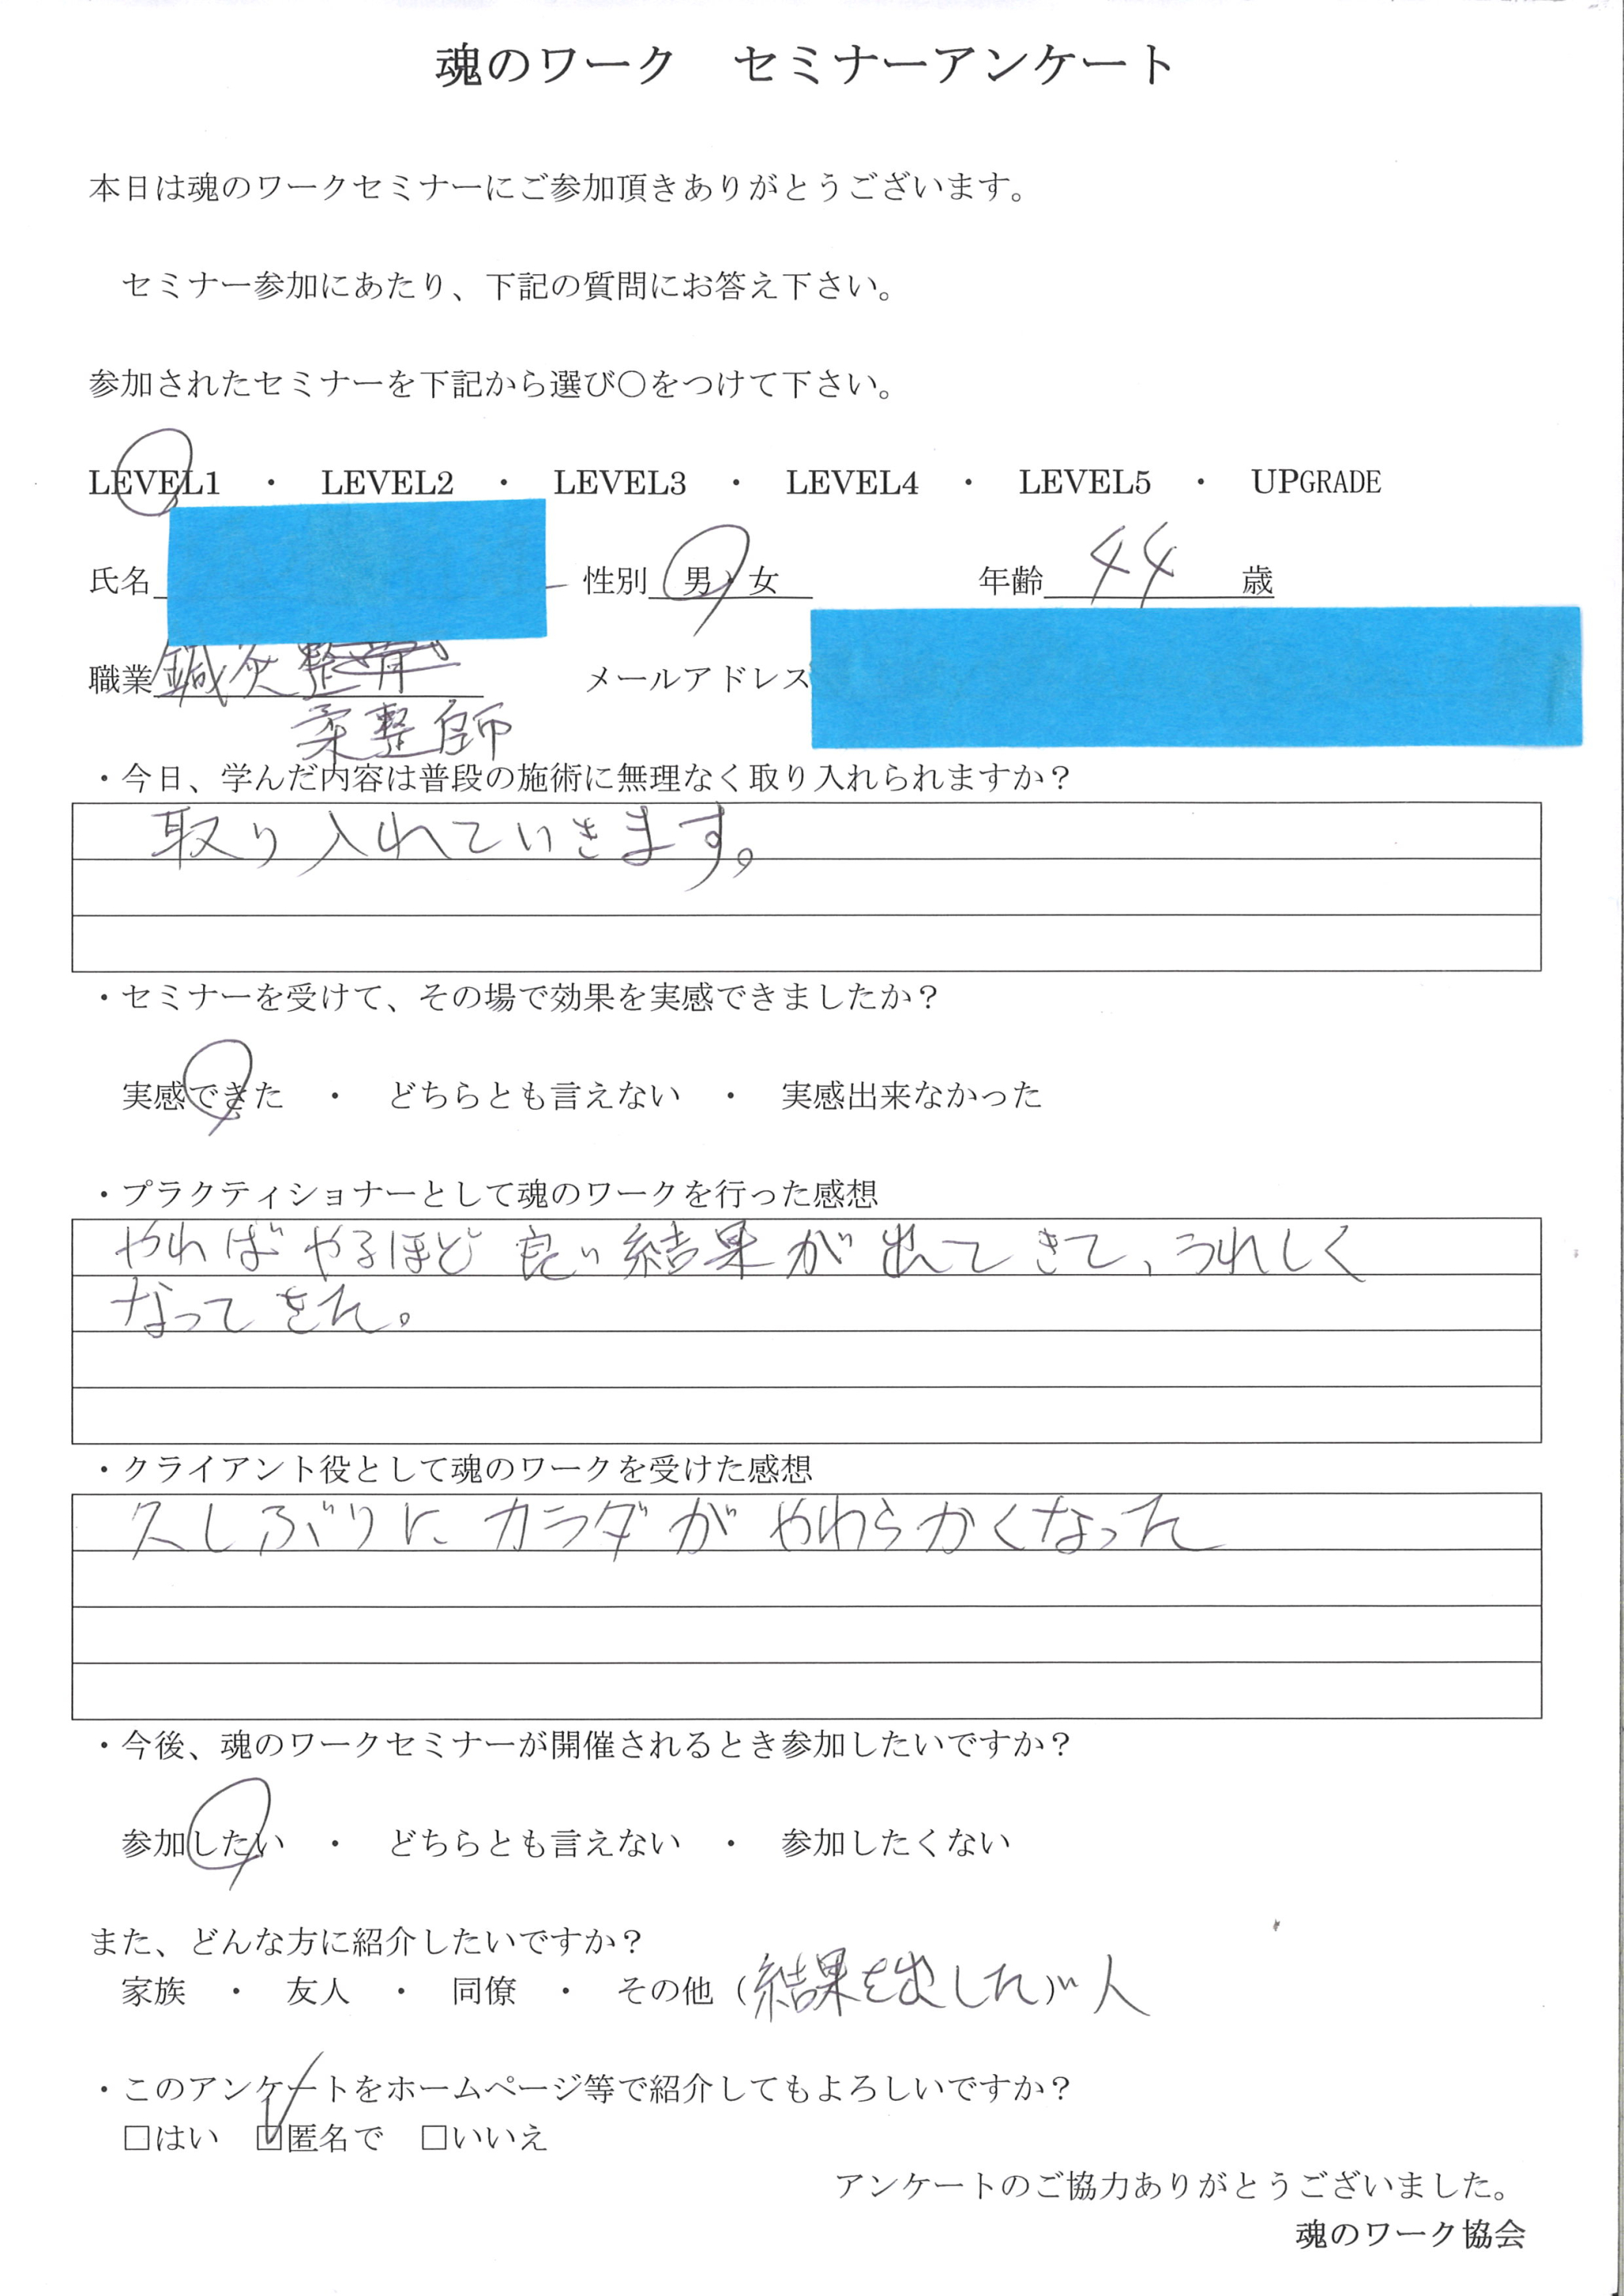 魂のワーク　セミナーアンケート
本日は魂のワークセミナーにご参加頂きありがとうございます。
セミナー参加にあたり、下記の質問にお答え下さい。
参加されたセミナーを下記から選び〇をつけて下さい。
LEVEL1　・　LEVEL2　・　LEVEL3　・　LEVEL4　・　LEVEL5　・　UPGRADE
氏名　性別　男・女　年齢　44　歳
職業　鍼灸整骨　メールアドレス
柔整師
・今日、学んだ内容は普段の施術に無理なく取り入れられますか？
取り入れていきます。
・セミナーを受けて、その場で効果を実感できましたか？
実感できた　・　どちらとも言えない　・　実感出来なかった
・プラクティショナーとして魂のワークを行った感想
やればやるほど良い結果が出てきて、うれしく
なってきた。
・クライアント役として魂のワークを受けた感想
久しぶりにカラダがやわらかくなった
・今後、魂のワークセミナーが開催されるとき参加したいですか？
参加したい　・　どちらとも言えない　・　参加したくない
また、どんな方に紹介したいですか？
家族　・　友人　・　同僚　・　その他（結果を出したい）人
・このアンケートをホームページ等で紹介してもよろしいですか？
□はい　☑匿名で　□いいえ
アンケートのご協力ありがとうございました。
魂のワーク協会